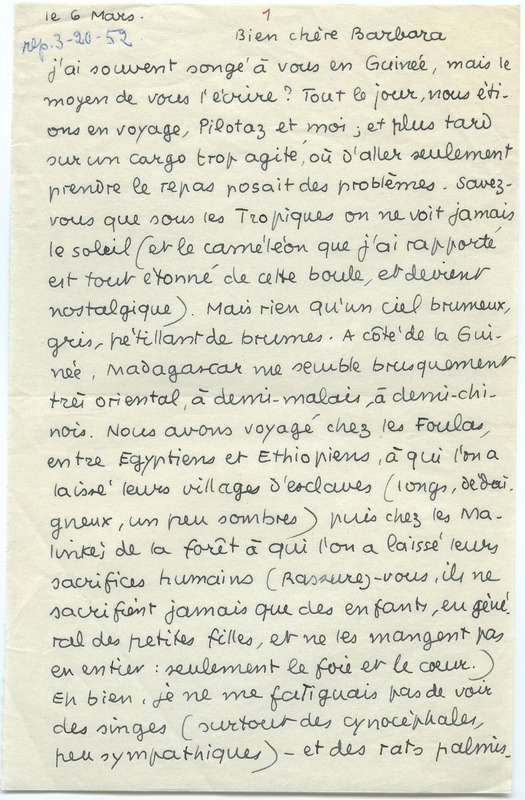 le 6 Mars.
1
rep. 3-20-52
Bien chère Barbara
j'ai souvent songé à vous en Guinée, mais le
moyen de vous l'écrire? Tout le jour, nous éti-
ons en voyage, Pilotaz et moi; et plus tard
sur un cargo trop agité, où d'aller seulement
prendre le repas posait des problèmes. Savez-
vous que sous les Tropiques on ne voit jamais
le soleil (et le caméléon que j'ai rapporté
est tout étonné de cette boule, et devient
nostalgique). Mais rien qu'un ciel brumeux,
gris, pétillant de brumes. A côté de la Gui-
née, Madagascar me semble brusquement
très oriental, à demi-malais, à demi-chi-
nois. Nous avons voyagé chez les Foulas,
entre Egyptiens et Ethiopiens, à qui l'on a
laissé leurs villages d'esclaves (longs, dédai-
gneux, un peu sombres) puis chez les Ma-
linkés de la forêt à qui l'on a laissé leurs
sacrifices humains (Rassurez-vous, ils ne
sacrifient jamais que des enfants, en géné-
ral des petites filles, et ne les mangent pas
en entier: seulement le foie et le cœur.)
Eh bien, je ne me fatiguais pas de voir
des singes (surtout des cynocéphales,
peu sympathiques) - et des rats palmis-